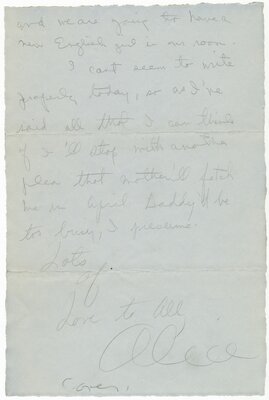 and we are going to have a
new English girl in our room.
I cant seem to write
properly today, so as I've
said all that I can think
of I'll stop with another
plea that mother'll fetch
me in April Daddy'll be
too busy, I presume.
Lots
of
Love to All
Alice
(over)